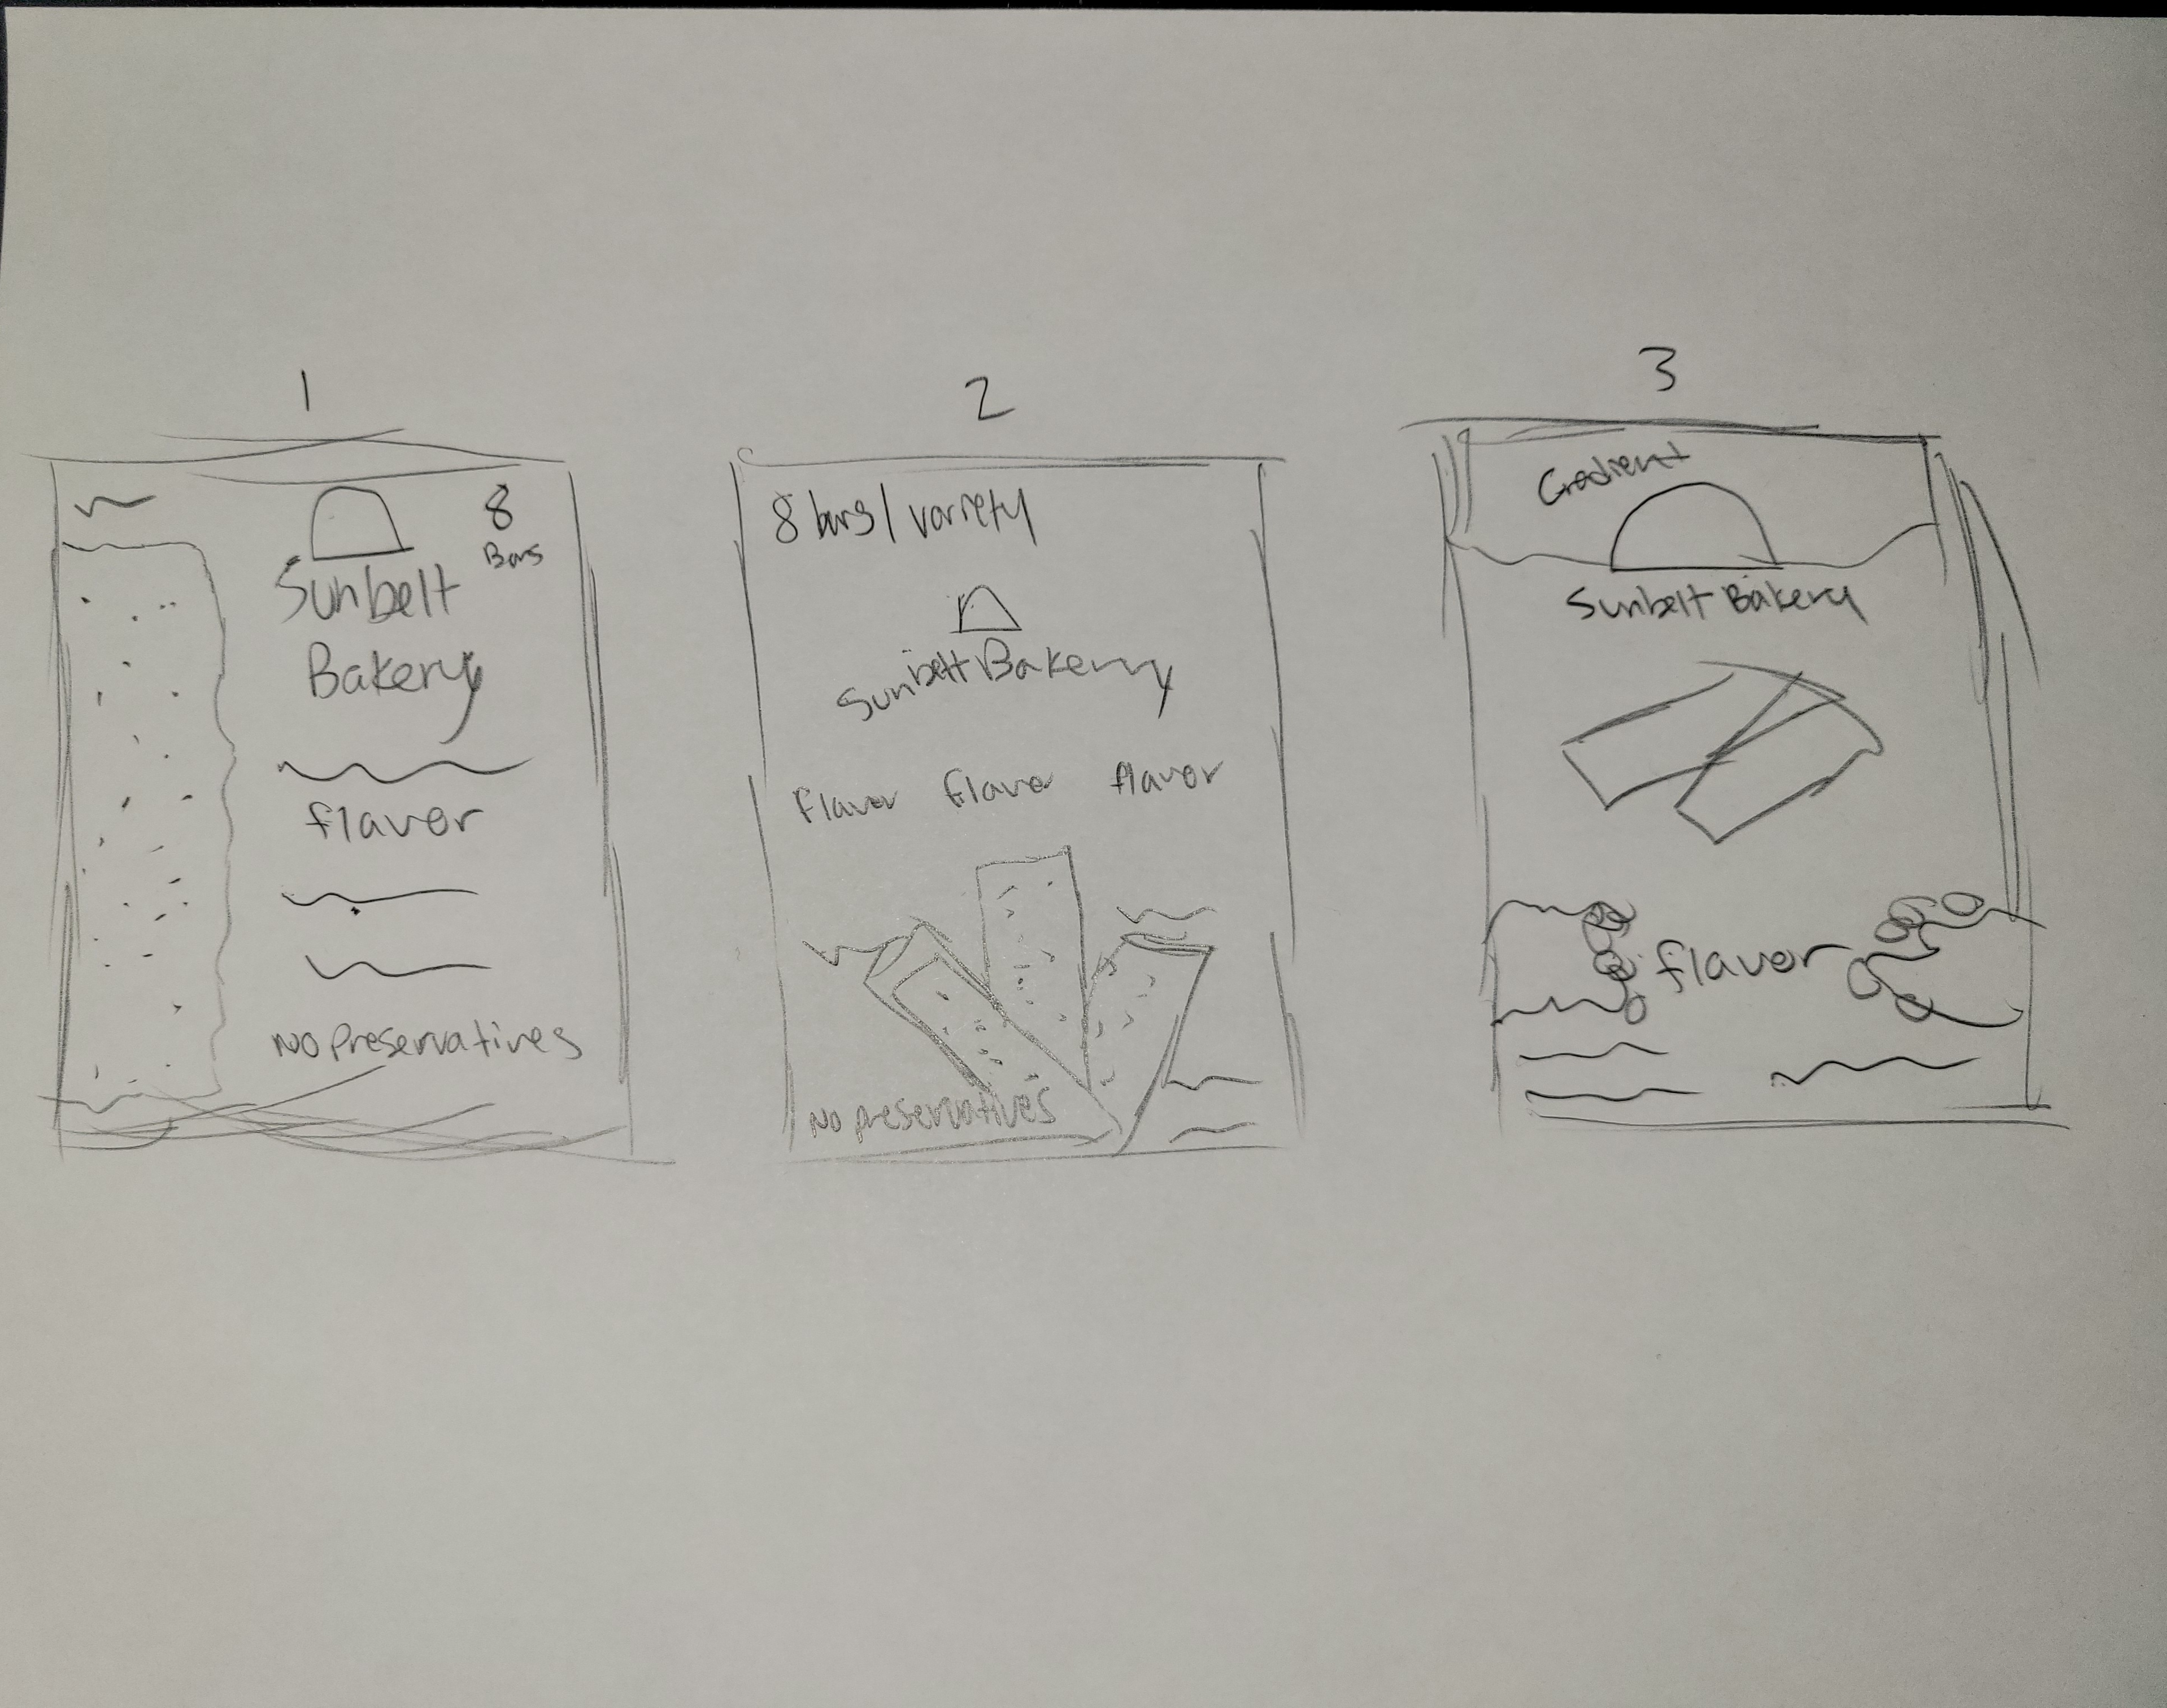 1
8
Bars
Sunbelt
Bakery
flavor
No Preservatives
2
8 bars/variety
Sunbelt Bakery
flavor flavor flavor
No preservatives
3
Gradient
Sunbelt Bakery
flavor